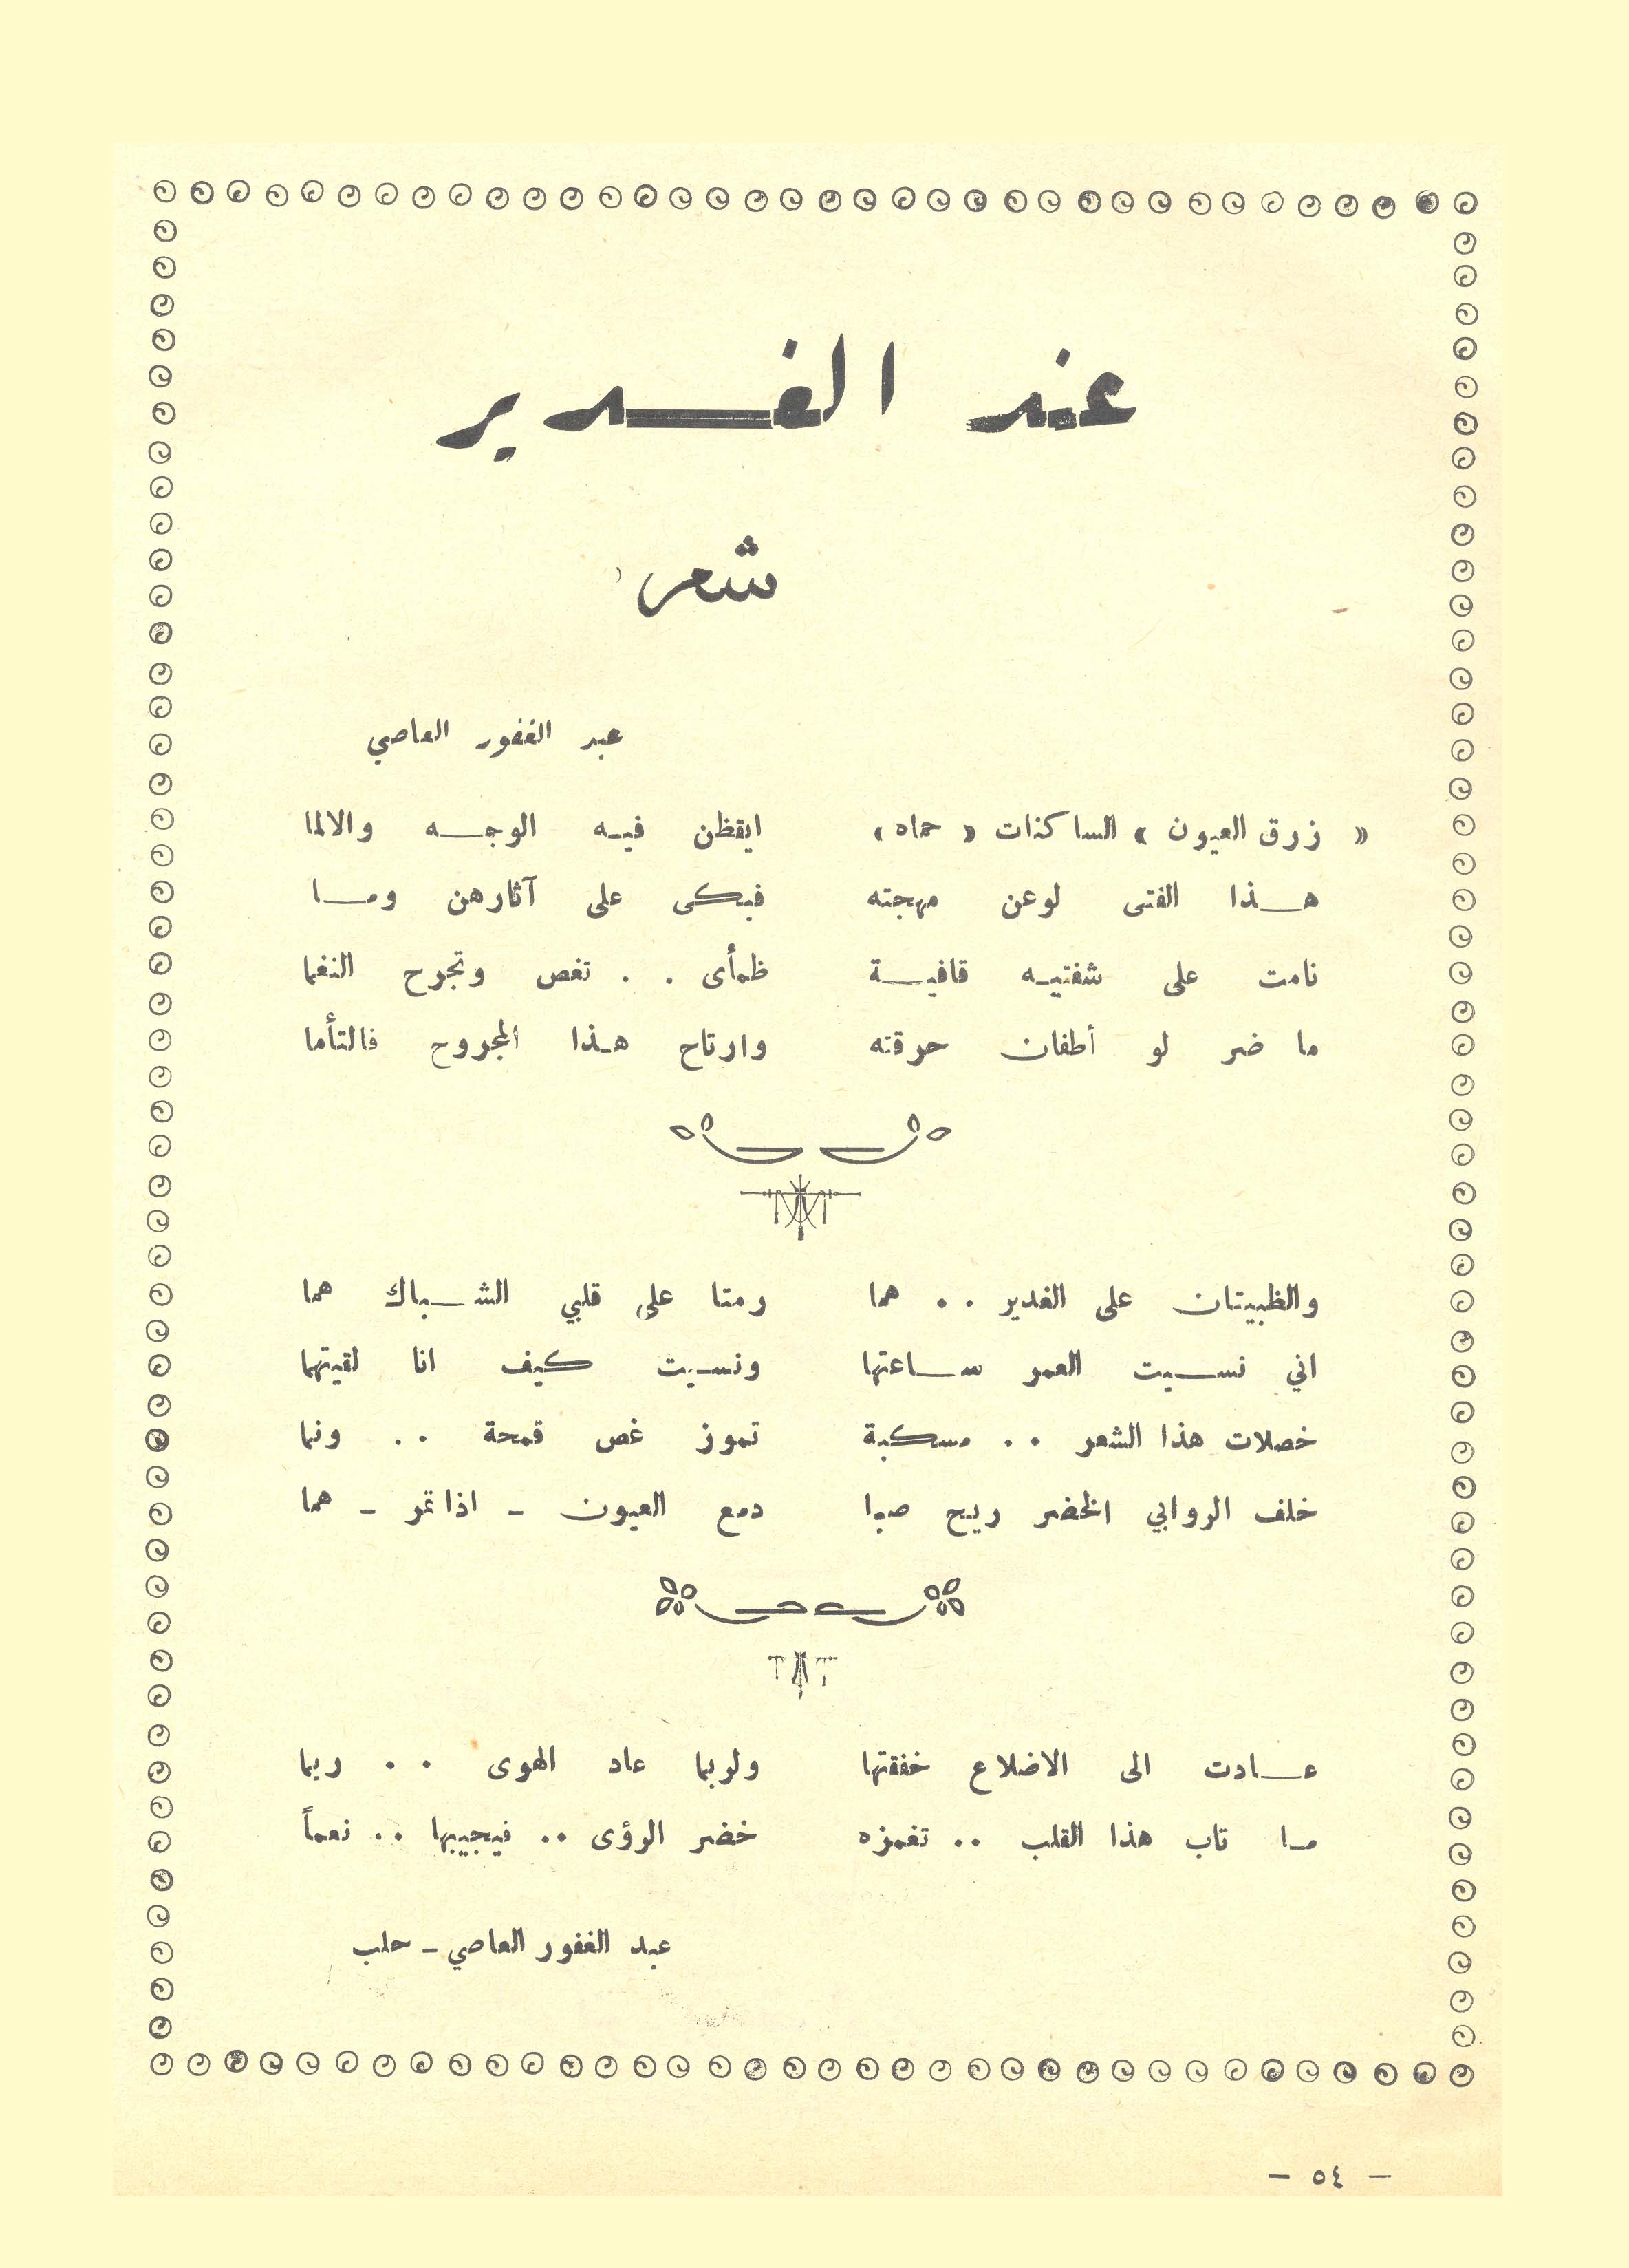 عند الغدير
شعر
عبد الغفور العاصي
« زرق العيون » الساكنات « حماه » ايقظن فيه الوجه والالما
هذا الفتى لوعن مهجته فبكى على آثارهن وما
نامت على شفتيه قافية ظمأى . . تغص وتجرح النغما
ما ضر لو أطفان حرقته وارتاح هذا المجروح فالتأما
والظبيتان على الغدير . . هما رمتا على قلبي الشباك هما
اني نسيت العمر ساعتها ونسيت كيف انا لقيتهما
خصلات هذا الشعر . . مسكبة تموز غص قمحة . . ونما
خلف الروابي الخضر ريح صبا دمع العيون - اذا تمر - هما
عادت الى الاضلاع خفقتها ولربما عاد الهوى . . ربما
ما تاب هذا القلب . . تغمزه خضر الرؤى . . فيجيبها . . نعماً
عبد الغفور العاصي - حلب
- ٥٤ -